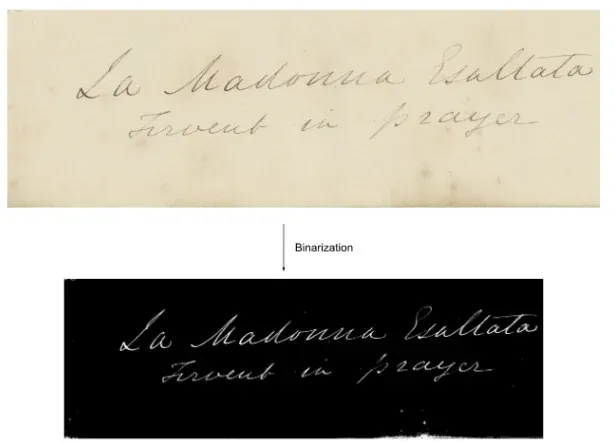 La Madonna Esaltata
Fervent in prayer
Binarization
La Madonna Esaltata
Fervent in prayer